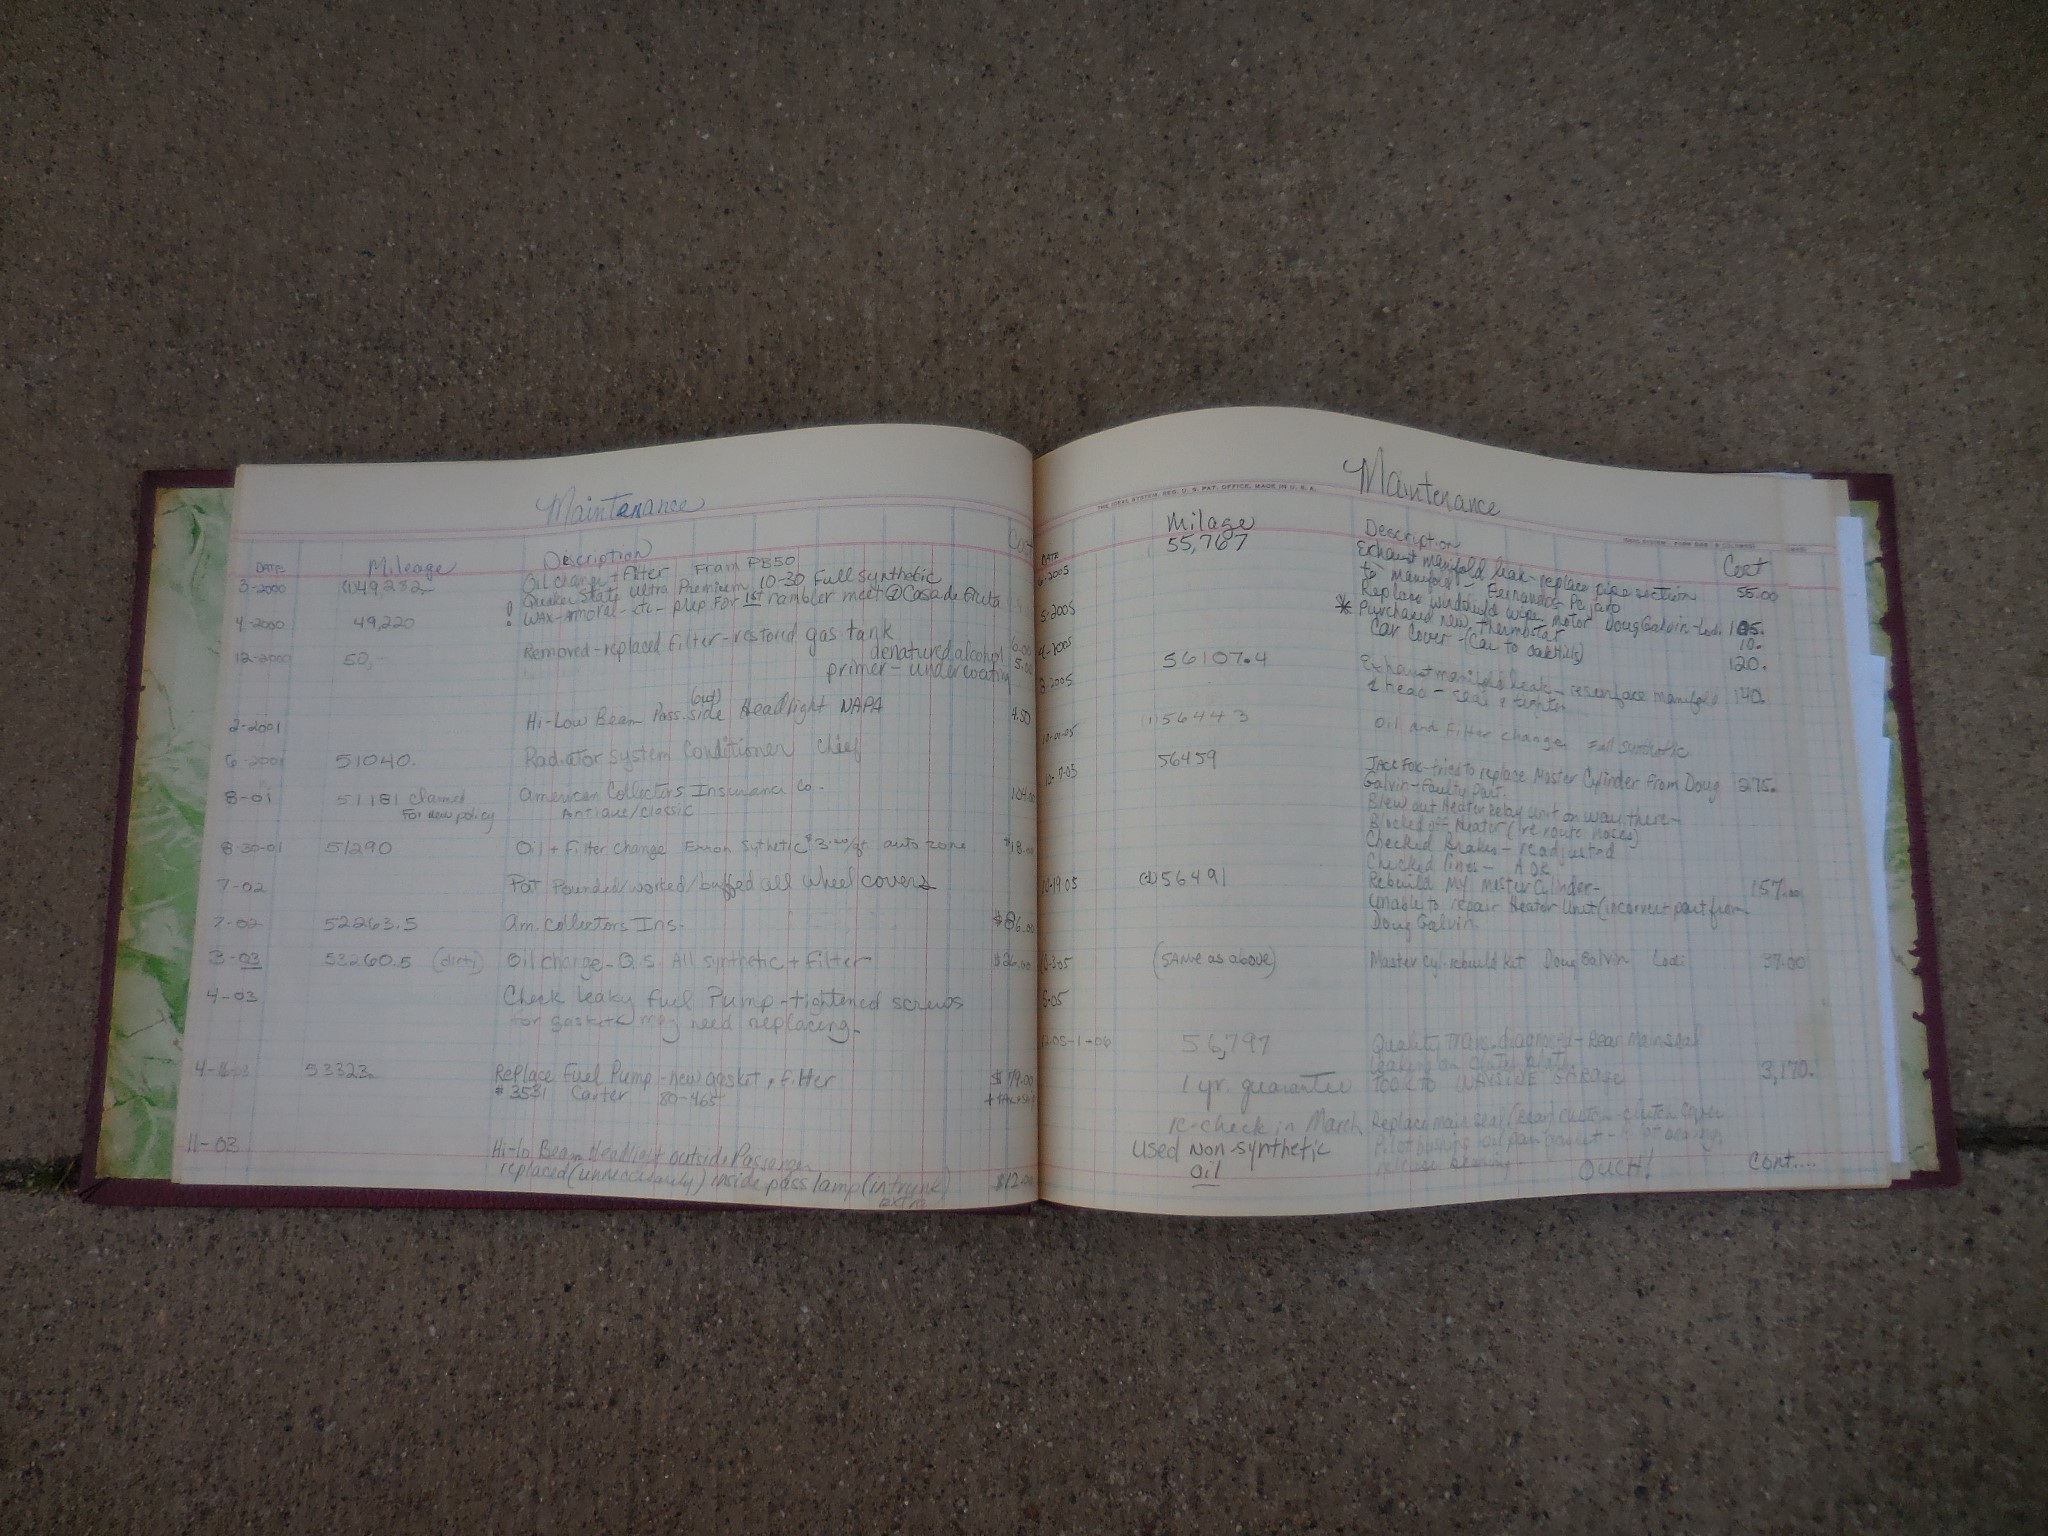 Maintenance
DATE Mileage Description Cost
3-2000 (1)49,282 Oil change + Filter Fram PB50
Quaker State Ultra Premium 10-30 Full synthetic
! Wax-Amorel-etc-prep For 1st rambler meet @ Casa de Fruta
4-2000 49,220
Removed-replaced Filter-restored gas tank
12-2000 50,- denatured alcohol 5.00
primer-undercoating
(out)
Hi-Low Beam Pass.side Headlight NAPA 4.50
2-2001
6-2001 51040. Radiator System Conditioner Chief
8-01 51181 claimed American Collectors Insurance Co. 104.00
For new policy Antique/classic
8-30-01 51290 Oil + Filter change Synthetic $3.00/qt auto zone $18.00
7-02 Pat Pounded/worked/buffed all wheel covers
7-02 52263.5 Am. Collectors Ins. $86.00
3-03 53260.5 (dirty) Oil change-Q.S. All synthetic + Filter $26.00
4-03 Check leaky Fuel Pump-tightened screws
For gasket may need replacing-
53323. Replace Fuel Pump-New gasket, Filter $79.00
#3531 Carter 80-465 + tax +
11-03 Hi-lo Beam Headlight outside Passenger
replaced (unnecessarily) inside pass lamp (in trunk) $12.00
extra
Maintenance
THE IDEAL SYSTEM, REG. U. S. PAT. OFFICE, MADE IN U. S. A.
DATE Milage Description Cost
55,767 Exhaust manifold leak-replace pipe section 55.00
to manifold-Fernandos-Pajaro
5-2005 Replace windshield wiper motor Doug Galvin-Lodi 105.
* Purchased new thermostat 10.
Car Cover-(Car to Oakhills) 120.
56107.4 Exhaust manifold leak-resurface manifold 140.
& head-seal & tighten
(1)56443 Oil and Filter change Full Synthetic
56459 Jack Fox-tried to replace Master Cylinder From Doug 275.
Galvin-Faulty part.
Blew out Heater Relay unit on way there-
Blocked off heater (re route hoses)
Checked Brakes-readjusted
Checked lines- AOK
10-19 05 56491 Rebuild My Master Cylinder- 157.00
Unable to repair Heater Unit (incorrect part from
Doug Galvin.
(SAME as above) Master cyl. rebuild kit Doug Galvin Lodi 37.00
56,797 Quality Trans. diagnosed-Rear Main seal
leaking on clutch plate
1 yr. guarantee TOOK TO WAYSIDE GARAGE 3,170.
re-check in March Replace main seal/rear clutch-clutch cover
used Non-synthetic oil pan gasket-
oil release bearing OUCH! Cont....